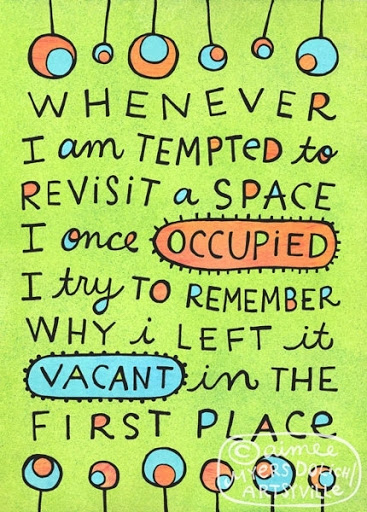 WHENEVER
I am TEMPTED to
REVISIT a SPACE
I once OCCUPIED
I try TO REMEMBER
WHY i LEFT it
VACANT in THE
FIRST PLACE
© aimee
MYERS DOLICH/
ARTSYVILLE